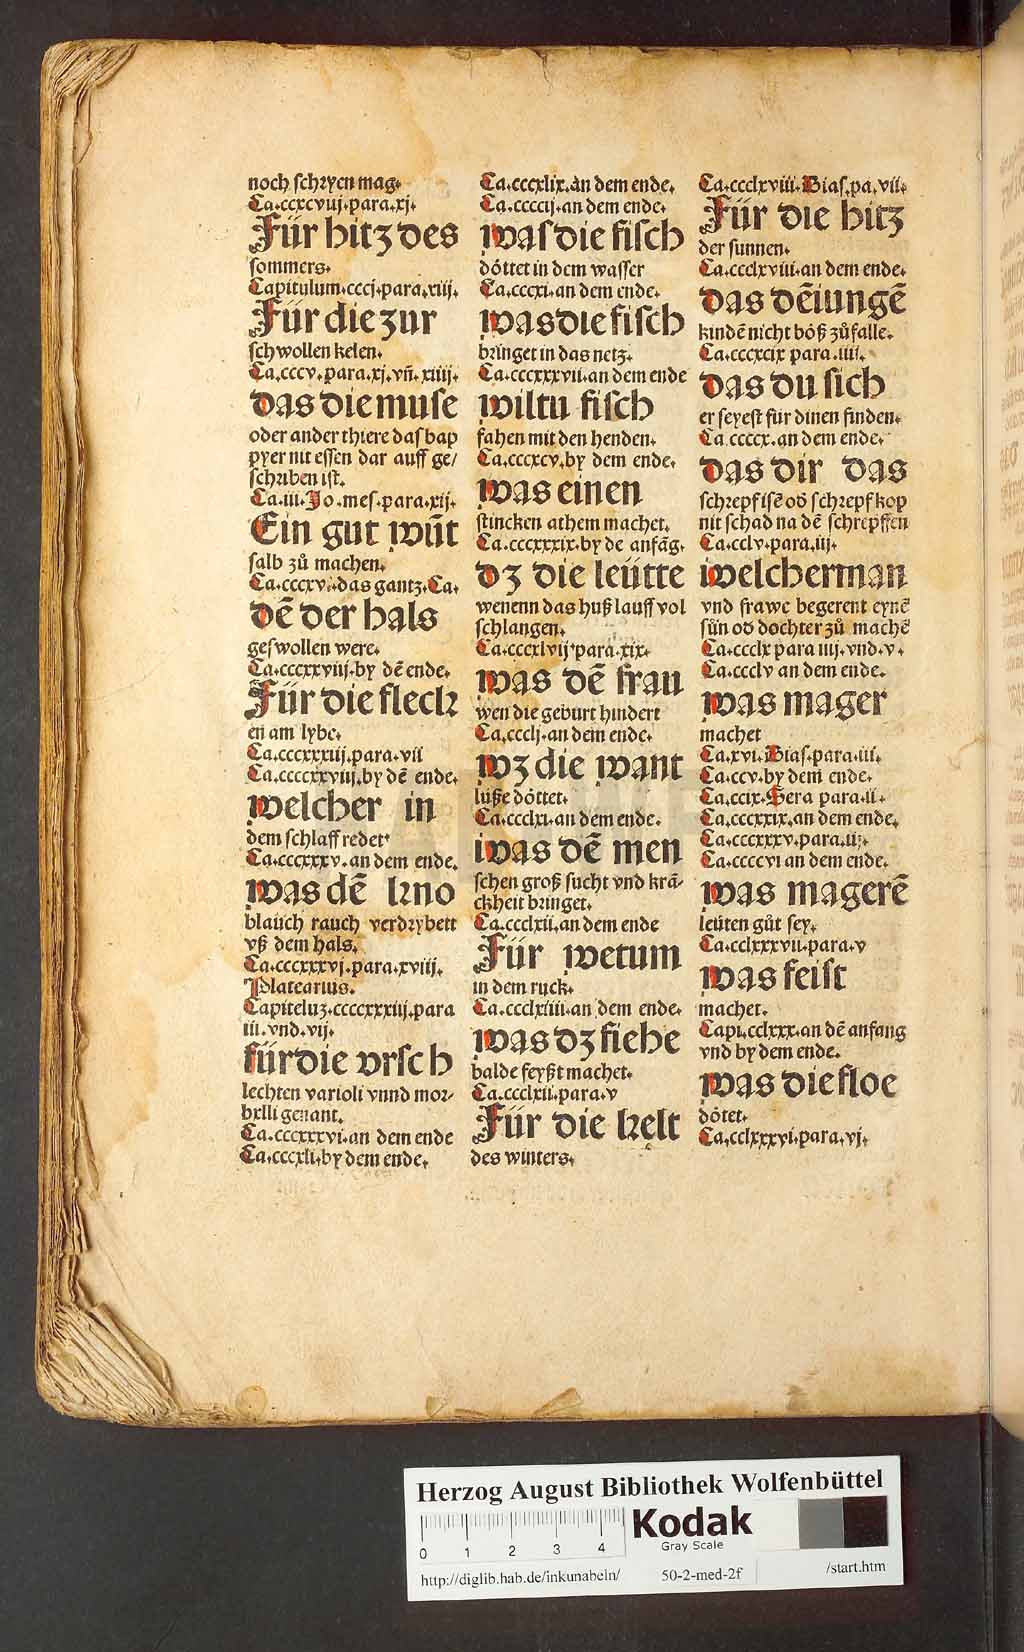 noch schryen mag.
Ca.ccxcvuj.para.xj.
Für hitz des
sommers.
Capitulum.cccj.para.xiij.
Für die zur
schwollen kelen.
Ca.cccv.para.xj.vn̄.xiiij.
das die muse
oder ander thiere das bap
pyer nit essen dar auff ge/
schriben ist.
Ca.iii.Jo.mes.para.xij.
Ein gut wūt
salb zů machen.
Ca.cccxvi.das gantz.Ca.
dē der hals
geswollen were.
Ca.cccxxviij.by dē ende.
Für die fleck
en am lybe.
Ca.cccxxxiij.para.vii
Ca.ccccxxviij.by dē ende.
welcher in
dem schlaff redet
Ca.cccxxxv.an dem ende.
was dē kno
blauch rauch verdrybett
vß dem hals.
Ca.cccxxxvj.para.xviij.
Platearius.
Capiteluz.ccccxxxiij.para
iii.vnd.vij.
fürdie vrsch
lechten varioli vnnd mor-
billi genant.
Ca.cccxxxvi.an dem ende
Ca.cccxli.by dem ende.
Ca.cccxlix.an dem ende.
Ca.ccccij.an dem ende.
was die fisch
döttet in dem wasser
Ca.cccxi.an dem ende.
was die fisch
bringet in das netz.
Ca.cccxxxvii.an dem ende
wiltu fisch
fahen mit den henden.
Ca.cccxcv.by dem ende.
was einen
stincken athem machet.
Ca.cccxxxix.by de anfāg.
dz die leütte
wenenn das huß lauff vol
schlangen.
Ca.cccxlvij para.xix.
was dē frau
wen die geburt hindert
Ca.ccclj.an dem ende.
wz die want
luße döttet.
Ca.ccclxi.an dem ende.
was dē men
schen groß sucht vnd krā-
ckheit bringet.
Ca.ccclxii.an dem ende
Für wetum
in dem ruck.
Ca.ccclxiii.an dem ende.
was dz fiehe
balde feyßt machet.
Ca.ccclxii.para.v
Für die kelt
des winters.
Ca.ccclxviii.Bias.pa.vii.
Für die hitz
der sunnen.
Ca.ccclxviii.an dem ende.
das dēiungē
kindē nicht böß zůfalle.
Ca.cccxcix para.iiii.
das du sich
er seyest für dinen finden.
Ca.ccccx.an dem ende.
das dir das
schrepf isē od schrepf kop
nit schad na dē schrepffen
Ca.cclv.para.iij.
welcherman
vnd frawe begerent eynē
sün od dochter zů machē
Ca.ccclx para iiij.vnd.v.
Ca.ccclv an dem ende.
was mager
machet
Ca.xvi.Bias.para.iii.
Ca.ccv.by dem ende.
Ca.ccix.Sera para.ii.
Ca.cccxxix.an dem ende.
Ca.cccxxxv.para.ii.
Ca.ccccvi an dem ende.
was magerē
leüten gůt sey.
Ca.cclxxxvii.para.v
was feist
machet.
Capi.cclxxx.an dē anfang
vnd by dem ende.
was die floe
dötet.
Ca.cclxxxvi.para.vj.
Herzog August Bibliothek Wolfenbüttel
Kodak
Gray Scale
0 1 2 3 4
http://diglib.hab.de/inkunabeln/ 50-2-med-2f /start.htm